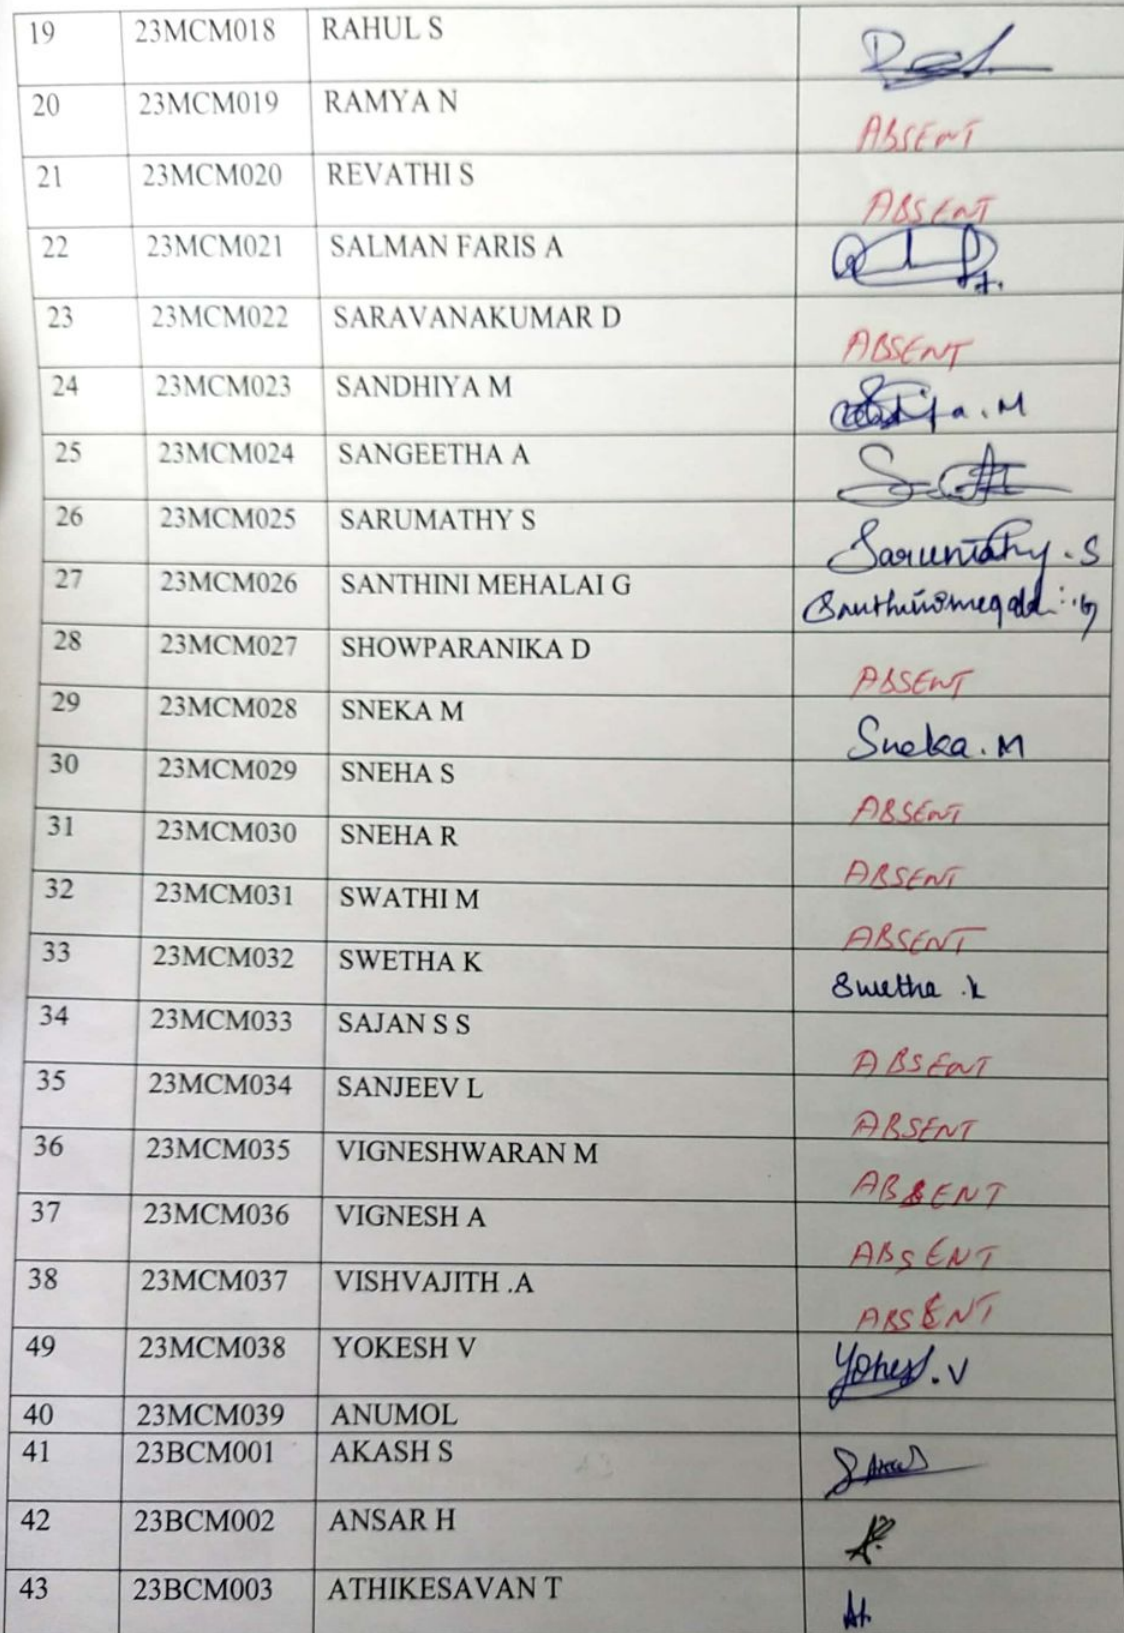 19 23MCM018 RAHUL S
20 23MCM019 RAMYA N ABSENT
21 23MCM020 REVATHI S ABSENT
22 23MCM021 SALMAN FARIS A
23 23MCM022 SARAVANAKUMAR D ABSENT
24 23MCM023 SANDHIYA M
25 23MCM024 SANGEETHA A
26 23MCM025 SARUMATHY S Sarumathy.S
27 23MCM026 SANTHINI MEHALAI G
28 23MCM027 SHOWPARANIKA D ABSENT
29 23MCM028 SNEKA M Sneka.M
30 23MCM029 SNEHA S ABSENT
31 23MCM030 SNEHA R ABSENT
32 23MCM031 SWATHI M ABSENT
33 23MCM032 SWETHA K Swetha.k
34 23MCM033 SAJAN S S ABSENT
35 23MCM034 SANJEEV L ABSENT
36 23MCM035 VIGNESHWARAN M ABSENT
37 23MCM036 VIGNESH A ABSENT
38 23MCM037 VISHVAJITH .A ABSENT
49 23MCM038 YOKESH V
40 23MCM039 ANUMOL
41 23BCM001 AKASH S
42 23BCM002 ANSAR H
43 23BCM003 ATHIKESAVAN T